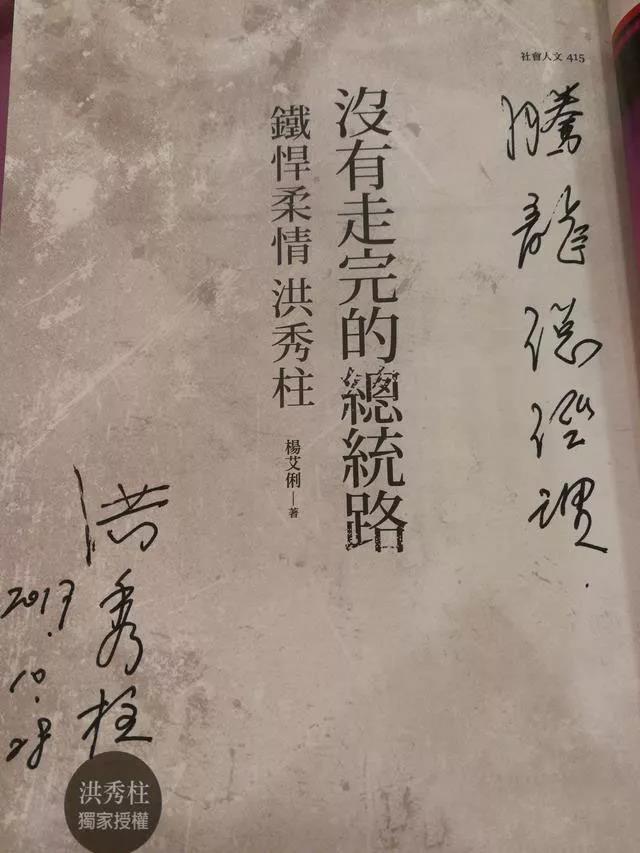 社會人文 415
騰龍總經理
沒有走完的總統路
鐵悍柔情 洪秀柱
楊艾俐—著
洪秀柱
2017.
10.
28
洪秀柱
獨家授權